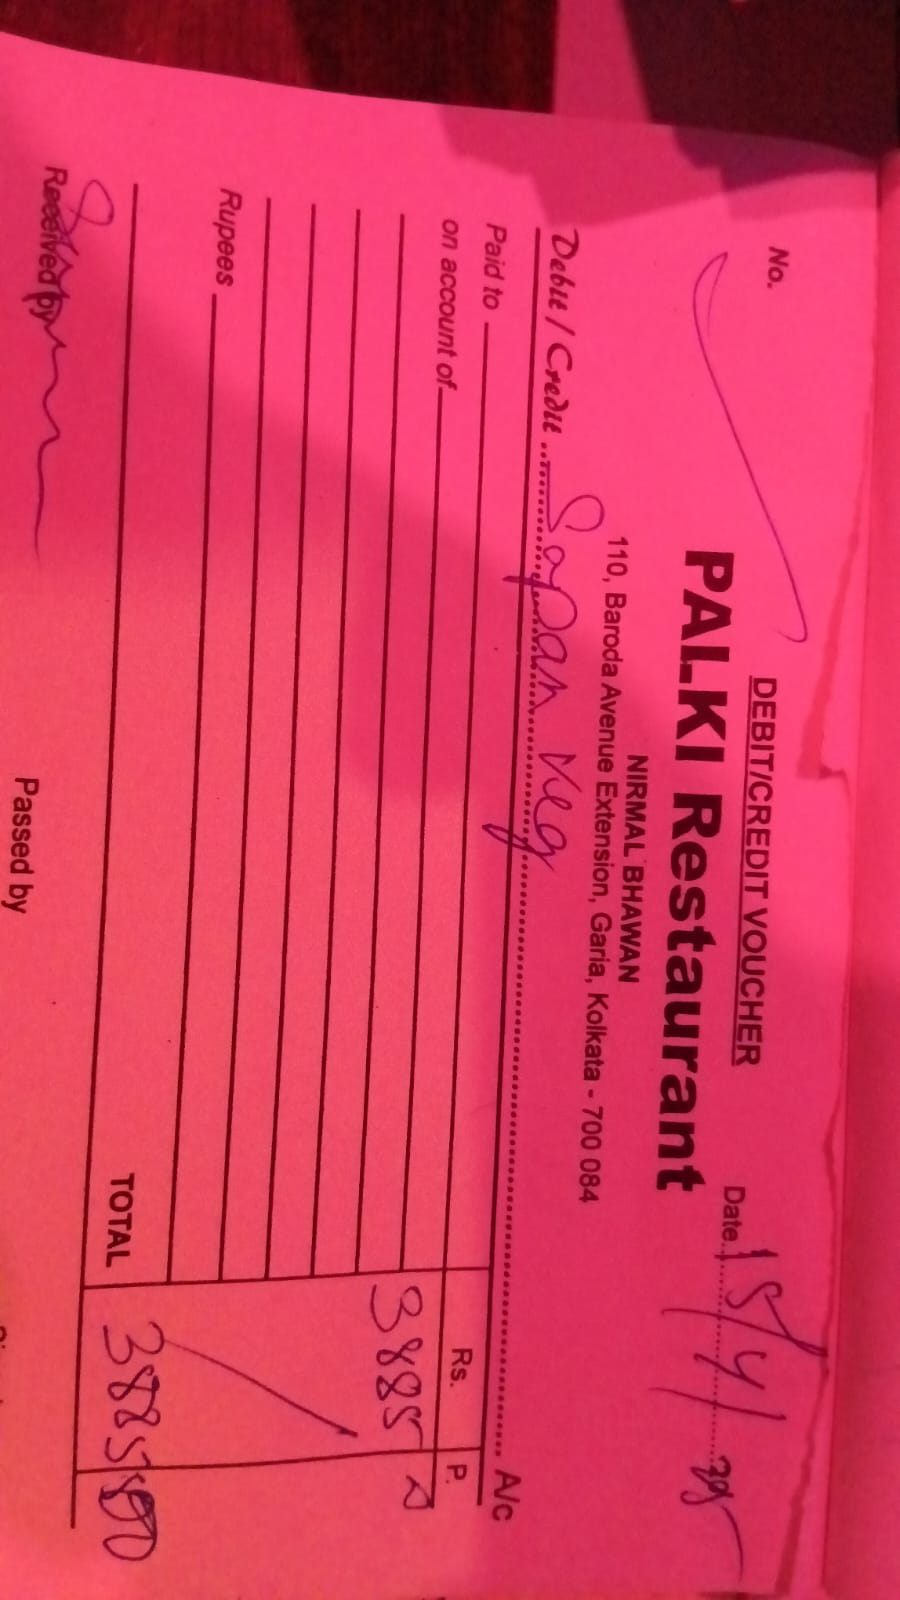 No.
DEBIT/CREDIT VOUCHER
Date 15/4/25
PALKI Restaurant
NIRMAL BHAWAN
110, Baroda Avenue Extension, Garia, Kolkata - 700 084
Debit / Credit Sopan Veg A/c
Paid to
on account of
Rs. P.
3885
Rupees
TOTAL 3885
Received by
Passed by